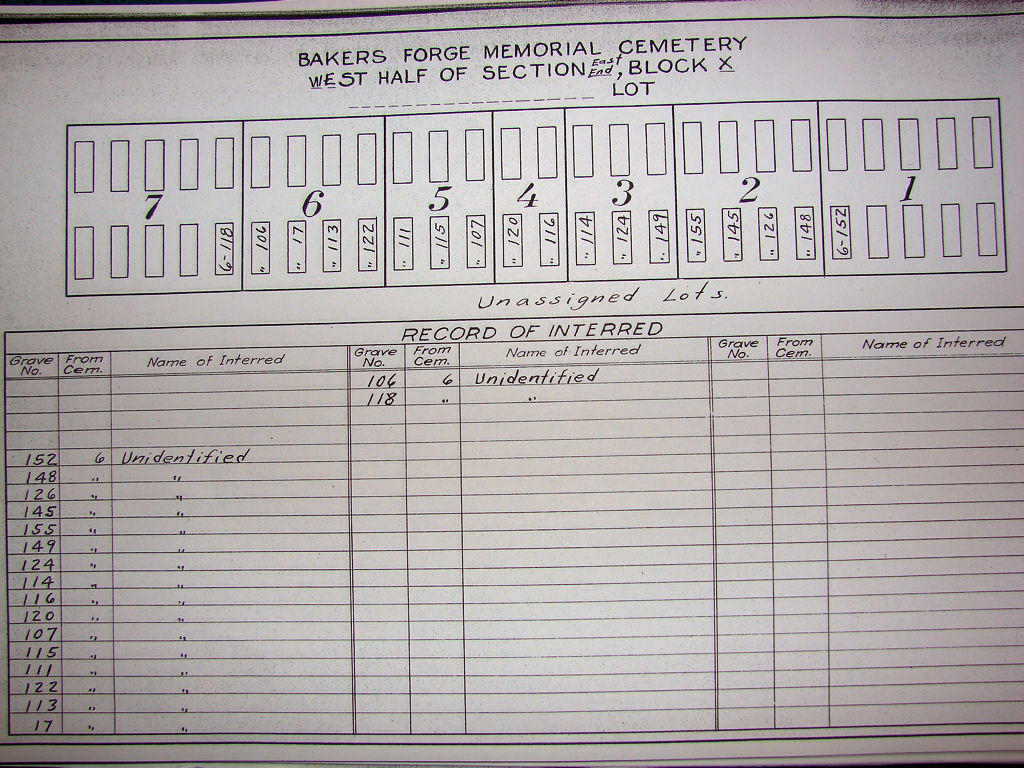 BAKERS FORGE MEMORIAL CEMETERY
WEST HALF OF SECTION East End, BLOCK X
LOT
7 6 5 4 3 2 1
6-118 " 106 " 17 " 113 " 122 " 111 " 115 " 107 " 120 " 116 " 114 " 124 " 149 " 155 " 145 " 126 " 148 6-152
Unassigned Lots.
RECORD OF INTERRED
Grave No. From Cem. Name of Interred Grave No. From Cem. Name of Interred Grave No. From Cem. Name of Interred
106 6 Unidentified
118 " "
152 6 Unidentified
148 " "
126 " "
145 " "
155 " "
149 " "
124 " "
114 " "
116 " "
120 " "
107 " "
115 " "
111 " "
122 " "
113 " "
17 " "